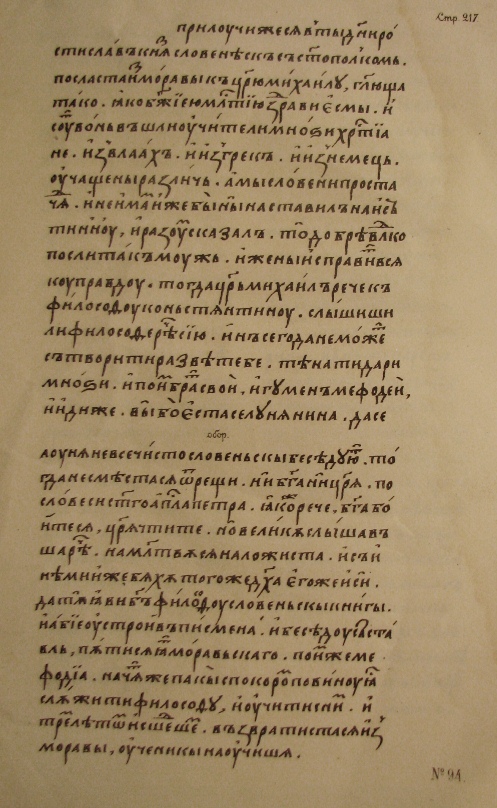 Стр. 217
прилоучижеся в̾тыдн҃иро́
стисла́въкнѧ҃словенѣскъсъст҃ополкомь.
посластаиⷥмора́выкъцр҃юмиха́илу, гл҃юща
та́ко. ꙗ́кобж҃їеюмлⷭ҇тїюздра́виєсмы. и҆
соу́твоньвъшлиоучи́телимно́ѕихрⷭ҇тїа
не. и҆звла́хъ. и҆и҆згрекъ. и҆и҆знемець.
оучащенырази́личь. а҆мысло́венипроста
чѧⷣ. и҆неи҆ма́миже
тинноу, и҆разоумъсказалъ. то̀добрѣ́влⷣко
послита́къмоужь. и҆женыи҆справи́твся
коуправдоу. тогдацр҃ьмихаи́лъречекъ
фило́софоуконьстѧнтиноу. слы́шиши
лифило́соферѣ́сїю. и҆нъсегоданемо́же
сътворитира́звѣтебе. тѣ́натида́ри
мно́ѕи. и҆пои́мбра́тсвои, и҆гу́менъмефо́деи,
и҆и҆диже. вы́бое҆стаселунянина. дасе
обор.
лоуняневсечистословеньскыбесѣ́дую. то́
гданесмѣ́стасяѿрещи. нибг҃аницр҃я. по
сло́весист҃гоап҃лапетра. ꙗ́корече, бг҃або́
и҆теся, цр҃ячтите. но̀вели́кꙋслы́шавъ
нѣмии҆жебѧхꙋтогожедх҃аєгожеи҆си́и.
да́тиꙗвибг҃ъфило́софоусловеньскыкни́гы.
и҆а́бїеоустро́ивъписмена̀. и҆бесѣ́доусъста́
вль, пѧтисямора́вьскаго. пои́мжеме
фо́дїа. нача́шѧжепа́кыспокоро́номпови́ноую
слꙋжи́тифило́софу, и҆оучи́тисним. и҆
трем лѣ́томи҆сше́дшем. възврати́стасяи҆з
мора́вы, оученикынаоучи́вша.
№ 94.